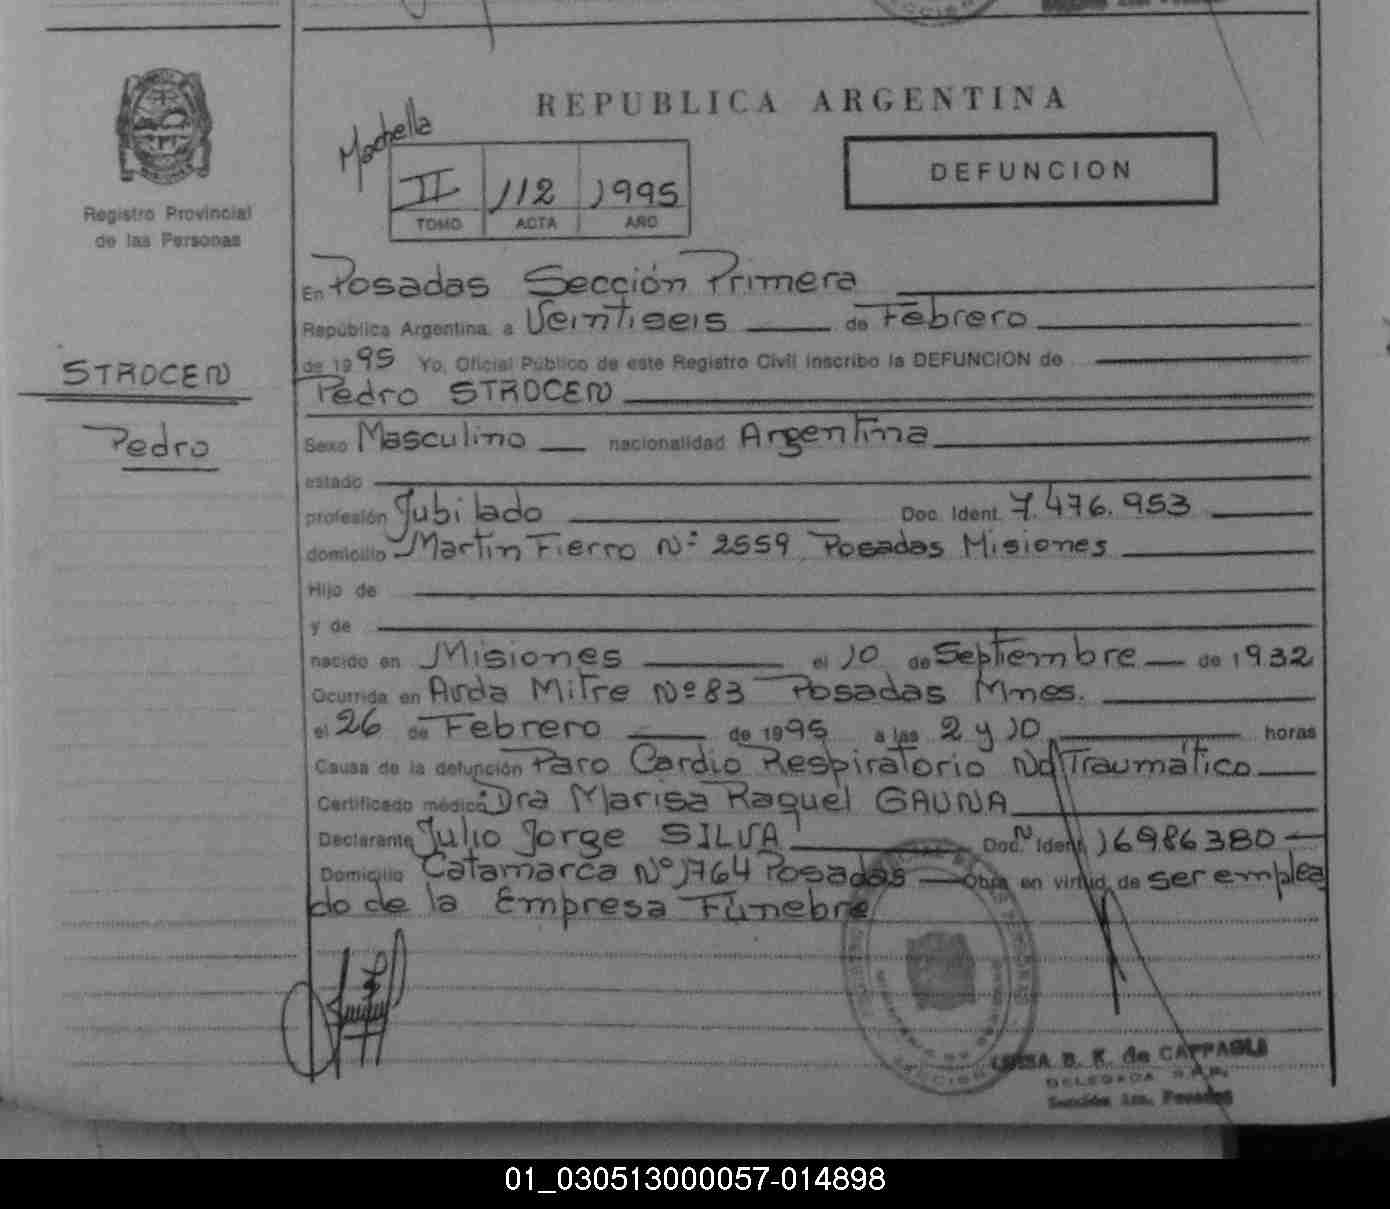 REPUBLICA ARGENTINA
Registro Provincial
de las Personas
Machella
II 112 1995
TOMO ACTA AÑO
DEFUNCION
En Posadas Sección Primera
República Argentina, a Veintiseis de Febrero
de 1995 Yo, Oficial Público de este Registro Civil inscribo la DEFUNCION de
STROCEN
Pedro
Pedro STROCEN
Sexo Masculino nacionalidad Argentina
estado
profesión Jubilado Doc. Ident. 7.476.953
domicilio Martin Fierro Nº 2559 Posadas Misiones
Hijo de
y de
nacido en Misiones el 10 de Septiembre de 1932
Ocurrida en Avda Mitre Nº 83 Posadas Mnes.
el 26 de Febrero de 1995 a las 2 y 10 horas
Causa de la defunción Paro Cardio Respiratorio No Traumático
Certificado médico Dra Marisa Raquel GAUNA
Declarante Julio Jorge SILVA Doc. N Ident. 16986380
Domicilio Catamarca Nº 1764 Posadas Obra en virtud de ser emplea
do de la Empresa Fúnebre
B. K. de CAPPAGLI
DELEGADA
Sección 1ra. Posadas
01_030513000057-014898